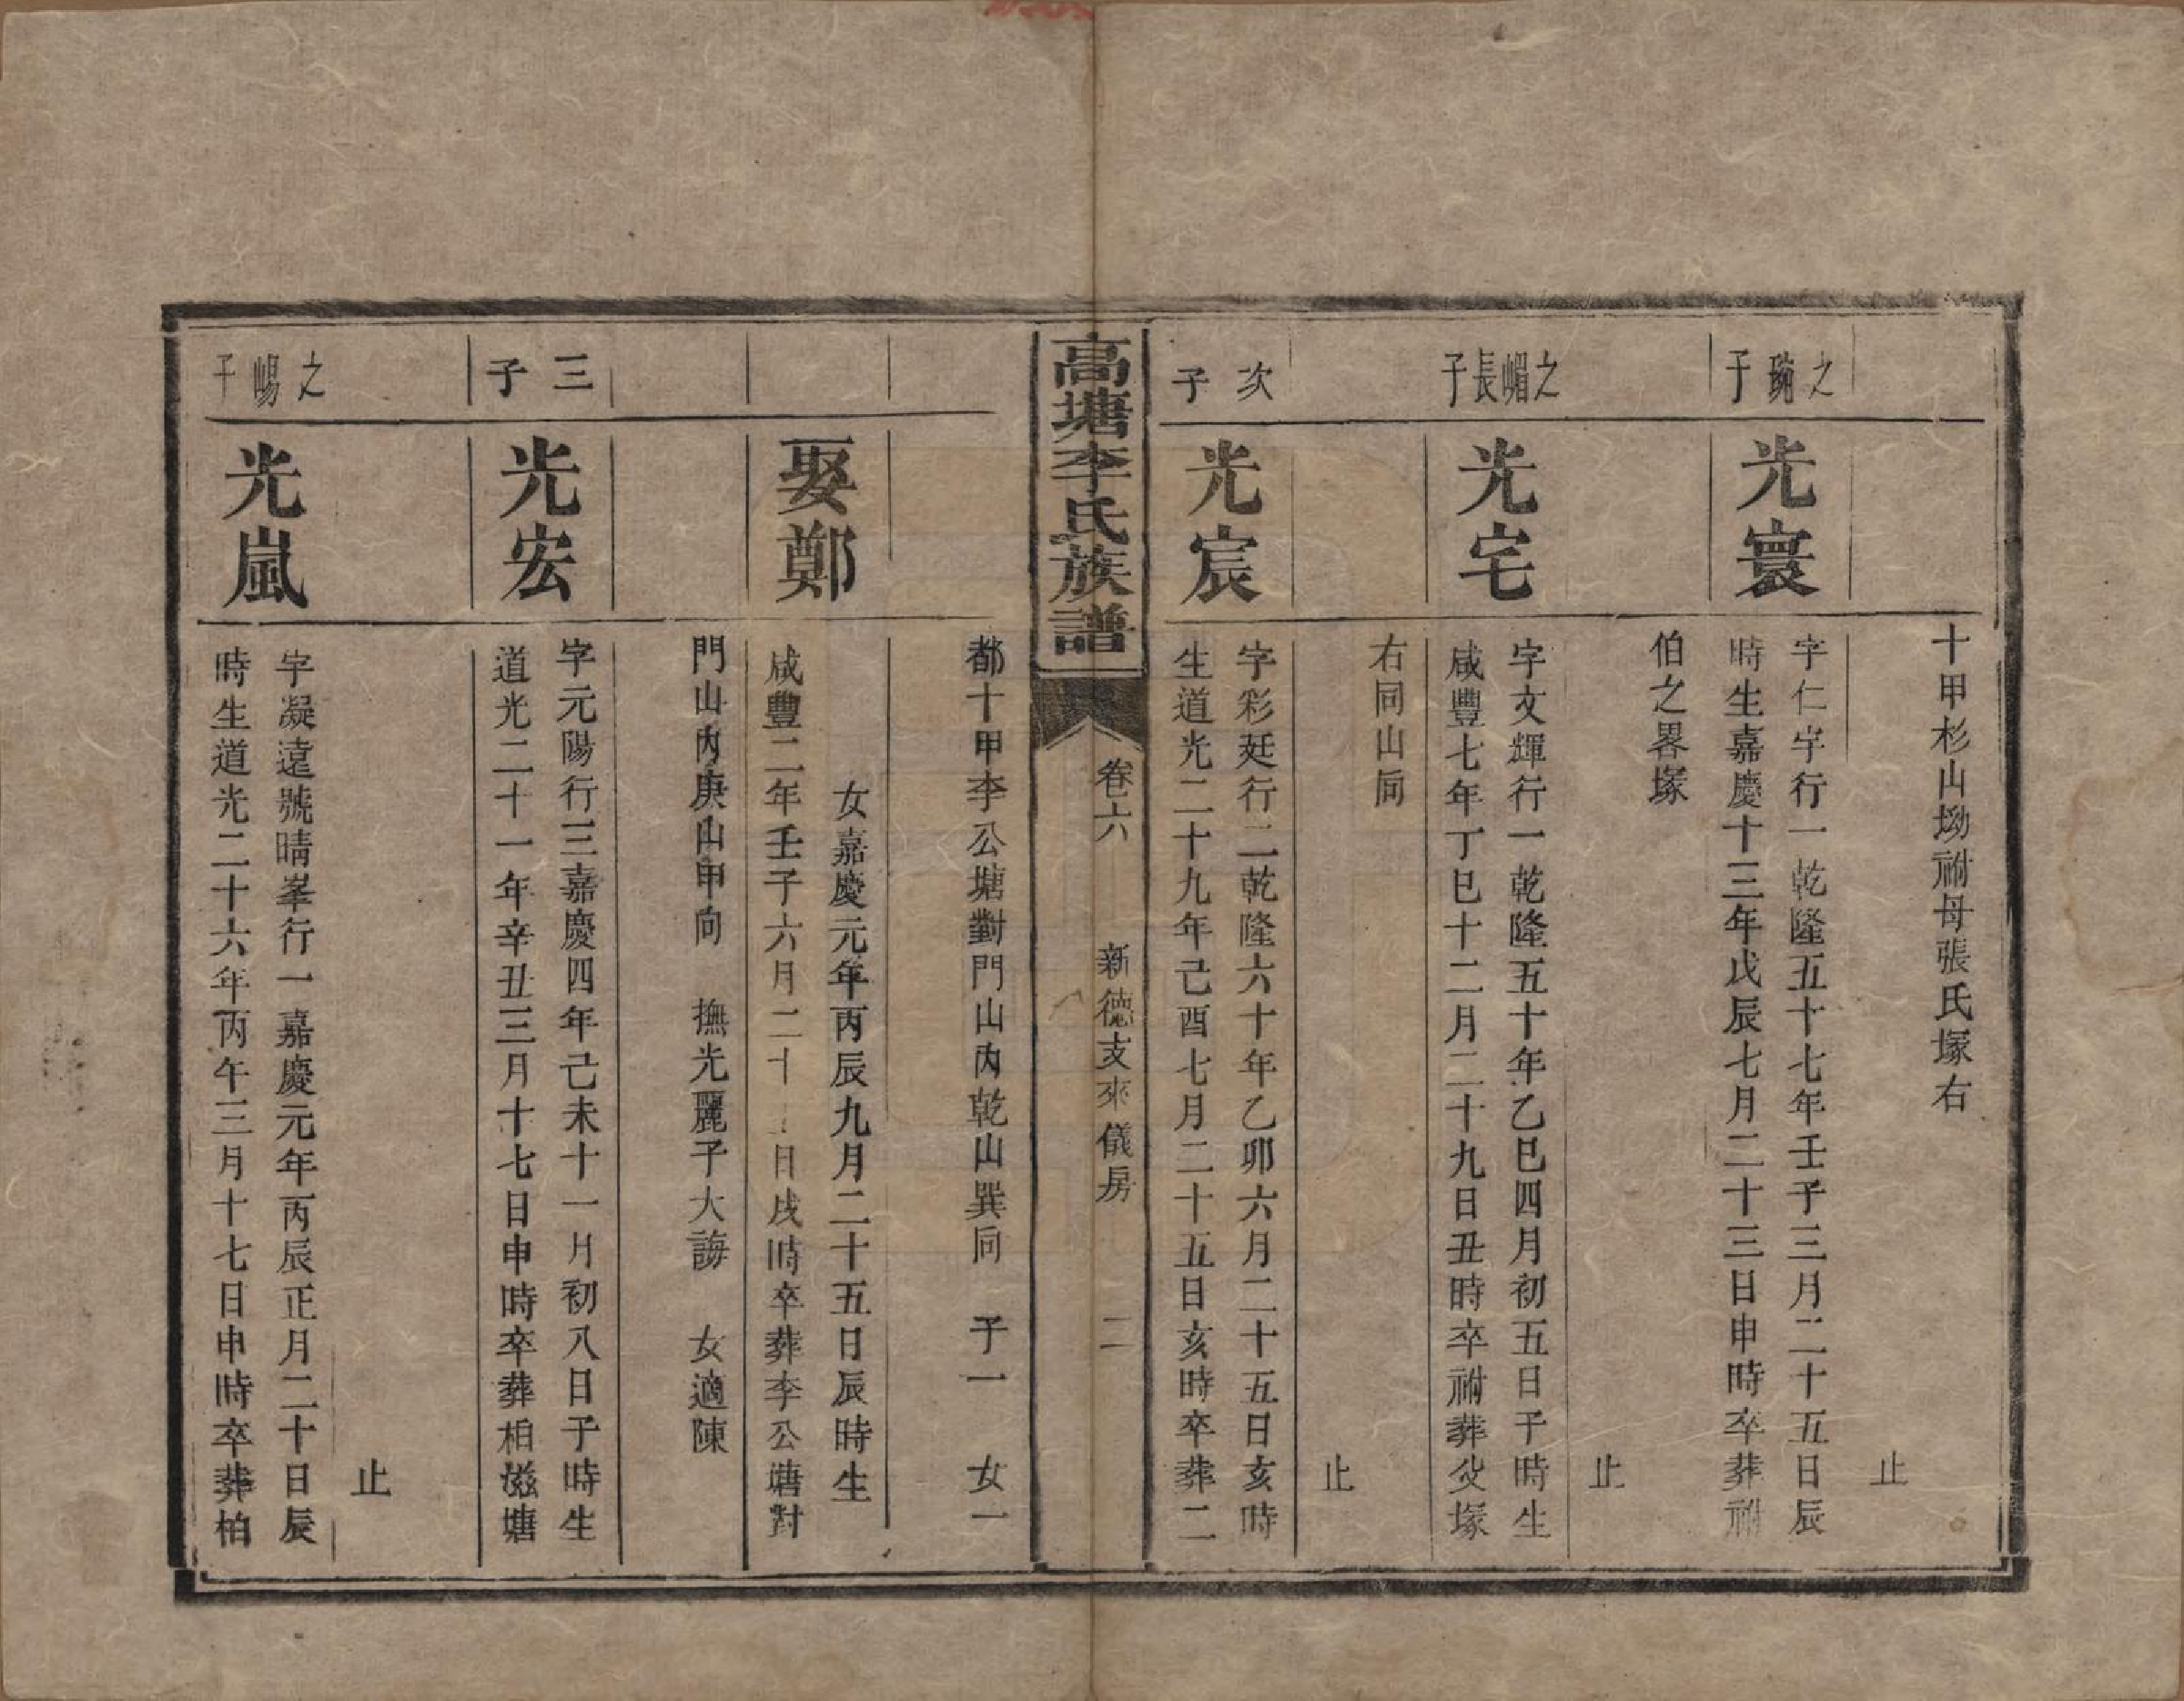 十甲杉山坳祔母張氏塚右
止
之豌子
光寰
字仁宇行一乾隆五十七年壬子三月二十五日辰
時生嘉慶十三年戊辰七月二十三日申時卒葬祔
伯之畧塚
止
之嵋長子
光宅
字文輝行一乾隆五十年乙巳四月初五日子時生
咸豐七年丁巳十二月二十九日丑時卒祔葬父塚
右同山向
止
次子
光宸
字彩廷行二乾隆六十年乙卯六月二十五日亥時
生道光二十九年己酉七月二十五日亥時卒葬二
高塘李氏族譜
卷六
新德支來儀房
二
都十甲李公塘對門山內乾山巽向 子一 女一
娶鄭
女嘉慶元年丙辰九月二十五日辰時生
咸豐二年壬子六月二十日戌時卒葬李公塘對
門山內庚山甲向 撫光麗子大誨 女適陳
三子
光宏
字元陽行三嘉慶四年己未十一月初八日子時生
道光二十一年辛丑三月十七日申時卒葬柏滋塘
止
之崵子
光嵐
字凝遠號晴峯行一嘉慶元年丙辰正月二十日辰
時生道光二十六年丙午三月十七日申時卒葬柏